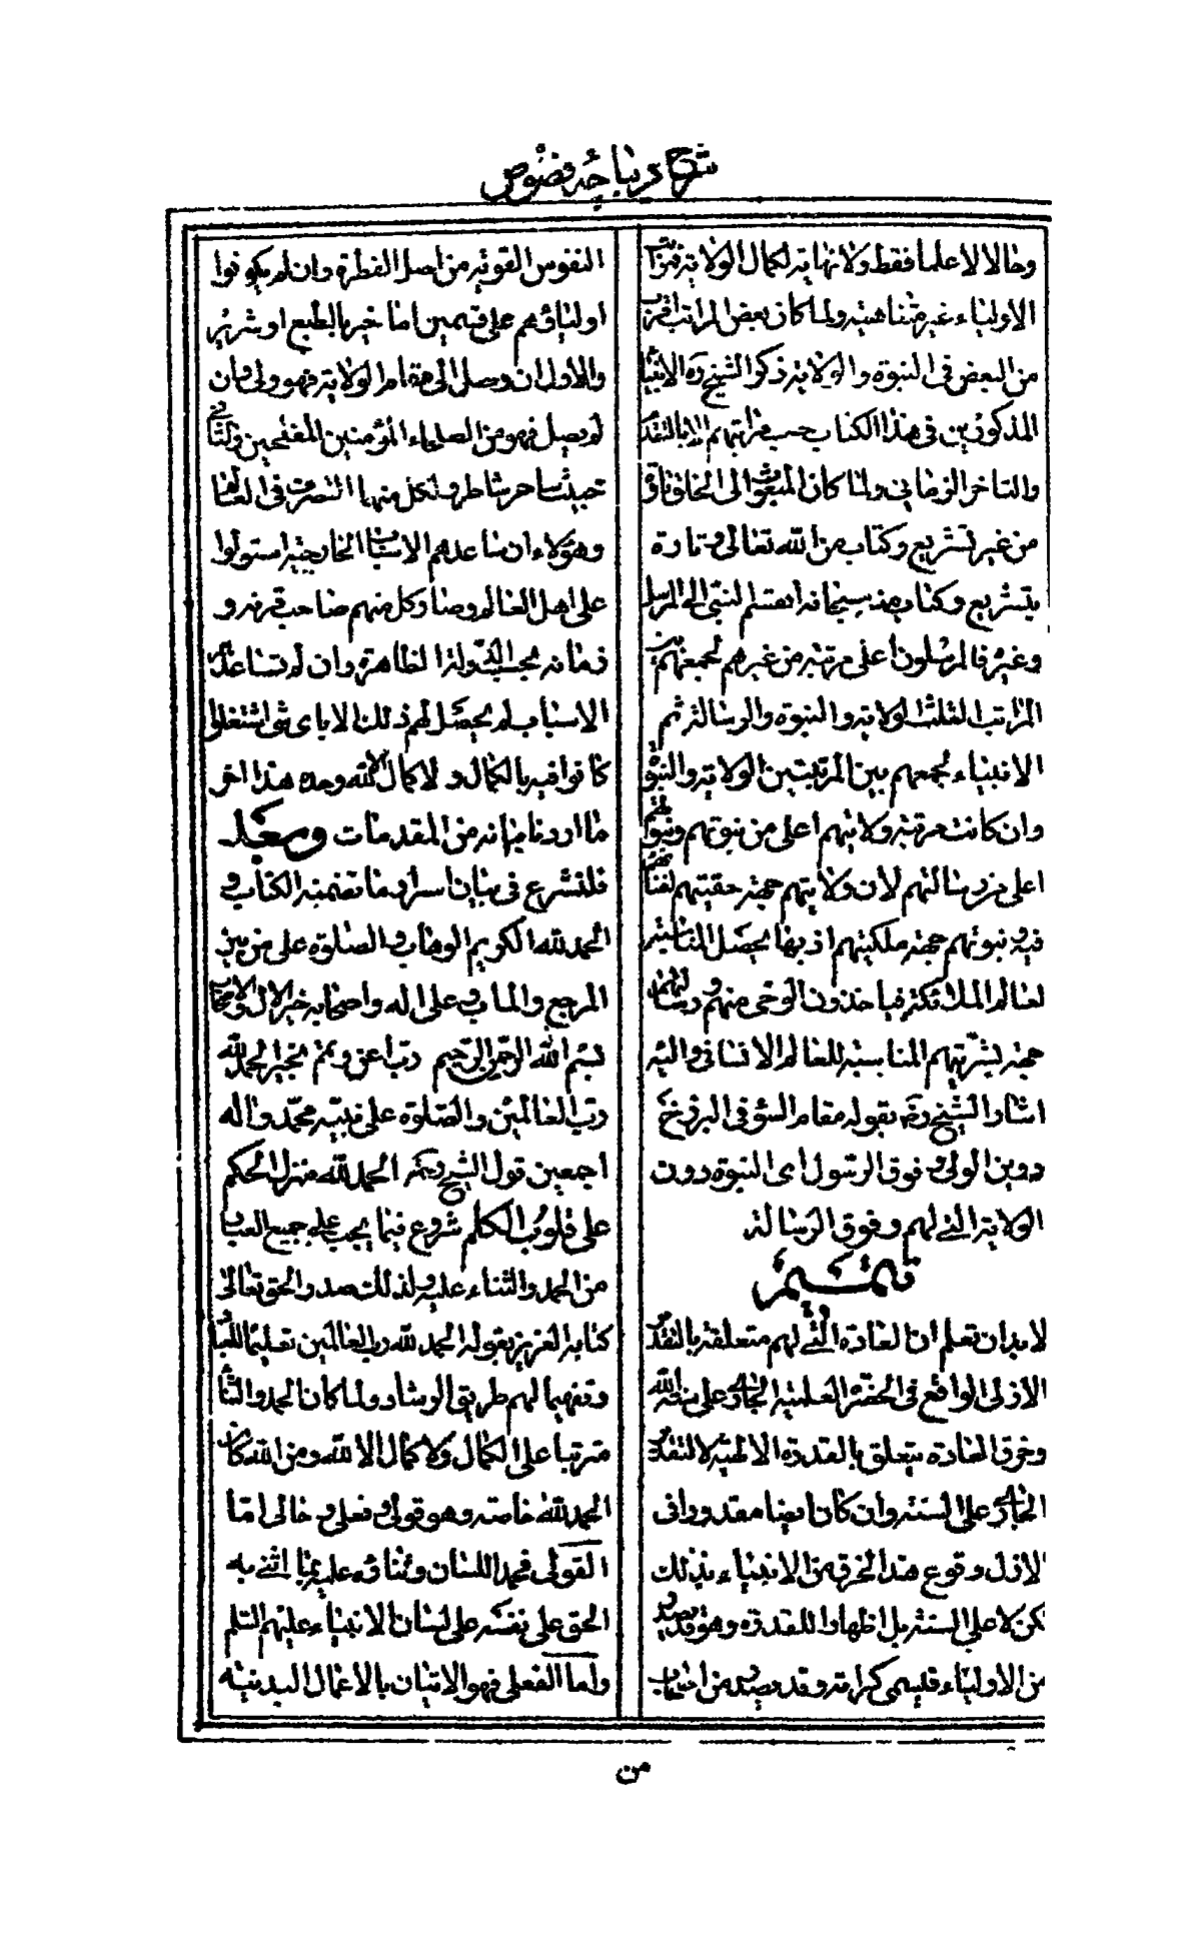 شرح ديباجه فصوص
وحالا لا علما فقط ولا نهاية لكمال الولاية فمراتب
الاولياء غير متناهية ولما كان بعض المراتب اقرب
من البعض فى النبوة والولاية ذكر الشيخ ره الانبياء
المذكورين فى هذا الكتاب حسب مراتبهم لا بالتقدم
والتاخر الزمانى ولما كان المبعوث الى الخلق تارة
من غير تشريع وكتاب من الله تعالى وتارة
بتشريع وكتاب منه سبحانه انقسم النبى الى المرسل
وغيره فالمرسلون اعلى مرتبة من غيرهم لجمعهم بين
المراتب الثلث الولاية والنبوة والرسالة ثم
الانبياء لجمعهم بين المرتبتين الولاية والنبوة
وان كانت مرتبة ولايتهم اعلى من نبوتهم ونبوتهم
اعلى من رسالتهم لان ولايتهم جهة حقيتهم لفنائهم
فيه ونبوتهم جهة ملكيتهم اذ بها يحصل المناسبة
لعالم الملائكة فياخذون الوحى منهم ورسالتهم
جهة بشريتهم المناسبة للعالم الانسانى واليه
اشار الشيخ رض بقوله مقام النبوة فى البرزخ
دوين الولى وفوق الرسول اى النبوة دون
الولاية التى لهم وفوق الرسالة
تتميم
لابد ان تعلم ان العادة التى لهم متعلقة بالتقدير
الازلى الواقع فى الحضرة العلمية الجارى على سنة الله
وخرق العادة يتعلق بالقدرة الالهية لا لتقدير
الجارى على السنة وان كان ايضا مقدورا فى
الازل وقوع هذا الخرق من الانبياء بذلك
لكن لا على السنة بل اظهارا للقدرة وهو قد يصدر
من الاولياء فليسمى كرامة وقد يصدر من اصحاب
النفوس القوية من اصل الفطرة وان لم يكونوا
اولياؤهم على قسمين اما خير بالطبع او شرير
والاول ان وصل الى مقام الولاية فهو ولى وان
لم يصل فهو من الصلحاء المؤمنين المفلحين والثانى
خبيث ساحر شاطر ولكل منهما التصرف فى العالم
وهؤلاء ان ساعدهم الاسباب الخارجية استولوا
على اهل العالم وصار كل منهم صاحب قرنه و
زمانه بحسب الدولة الظاهرة وان لم تساعدهم
الاسباب لم يحصل لهم ذلك الا باى شى اشتغلوا
كانوا فيه بالكمال ولا كمال الا لله وحده هذا اخر
ما اردنا بيانه من المقدمات وبعد
فلنشرع فى بيان اسرار ما تضمنه الكتاب و
الحمد لله الكريم الوهاب والصلوة على من بين
المرجع والماب وعلى اله واصحابه خير الال والاصحاب
بسم الله الرحمن الرحيم رب اعن وتمم بخير الحمد لله
رب العالمين والصلوة على نبيه محمد واله
اجمعين قول الشيخ رحمه الحمد لله منزل الحكم
على قلوب الكلم شروع فيما يجب على جميع العباد
من الحمد والثناء عليه ولذلك صدر الحق تعالى
كتابه العزيز بقوله الحمد لله رب العالمين تعليما للعباد
وتفهيما لهم طريق الرشاد ولما كان الحمد والثناء
مترتبا على الكمال ولا كمال الا لله ومن الله كان
الحمد لله خاصة وهو قولى وفعلى وحالى اما
القولى فحمد اللسان وثناؤه عليه بما اثنى به
الحق على نفسه على لسان الانبياء عليهم السلم
واما الفعلى فهو الاتيان بالاعمال البدنية
من